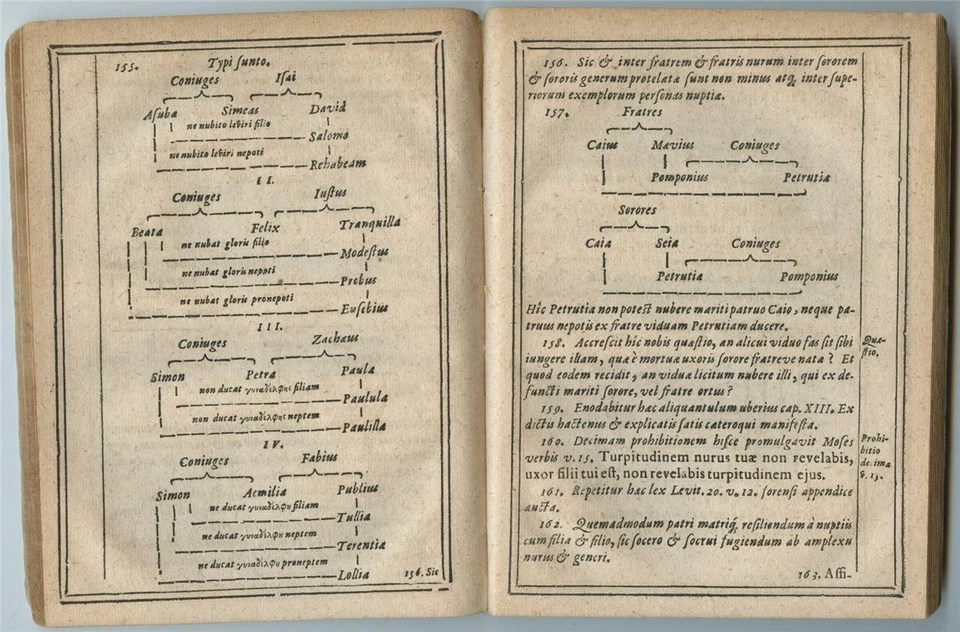 155.
Typi sunto.
Coniuges Isai
Asuba Simeas David
ne nubito leviri filio
Salomo
ne nubito leviri nepoti
Rehabeam
II.
Coniuges Iustus
Beata Felix Tranquilla
ne nubat gloris filio
Modestus
ne nubat gloris nepoti
Probus
ne nubat gloris pronepoti
Eusebius
III.
Coniuges Zachæus
Simon Petra Paula
non ducat filiam
Paulula
non ducat neptem
Paulilla
IV.
Coniuges Fabius
Simon Aemilia Publius
ne ducat filiam
Tullia
ne ducat neptem
Terentia
ne ducat proneptem
Lollia
156. Sic
156. Sic & inter fratrem & fratris nurum inter sororem
& sororis generum protelatæ sunt non minus atq, inter supe-
riorum exemplorum personas nuptiæ.
157. Fratres
Caius Mævius Coniuges
Pomponius Petrutia
Sorores
Caia Seia Coniuges
Petrutia Pomponius
Hîc Petrutia non potest nubere mariti patruo Caio, neque pa-
truus nepotis ex fratre viduam Petrutiam ducere.
158. Accrescit hîc nobis quæstio, an alicui viduo fas sit sibi
iungere illam, quæ è mortuæ uxoris sorore fratreve nata? Et
quod eodem recidit, an viduæ licitum nubere illi, qui ex de-
functi mariti sorore, vel fratre ortus?
Quæ-
stio.
159. Enodabitur hac aliquantulum uberius cap. XIII. Ex
dictis hactenus & explicatis satis cateroqui manifesta.
160. Decimam prohibitionem hisce promulgavit Moses
verbis v. 15. Turpitudinem nurus tuæ non revelabis,
uxor filii tui est, non revelabis turpitudinem ejus.
Prohi-
bitio
decima
v. 15.
161. Repetitur hac lex Levit. 20. v. 12. forensi appendice
aucta.
162. Quemadmodum patri matriq, resiliendum à nuptiis
cum filia & filio, sic socero & socrui fugiendum ab amplexu
nurus & generi.
163. Affi-